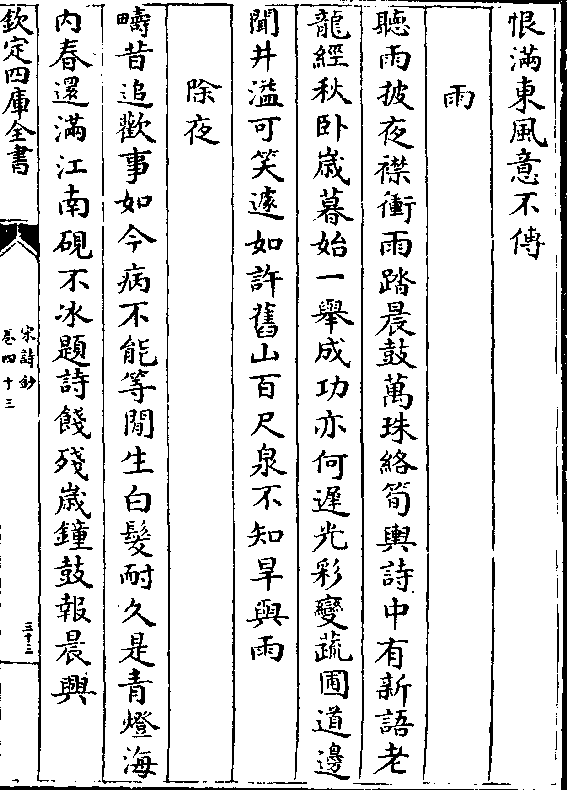 恨滿東風意不傳
雨
聽雨披夜襟衝雨踏晨鼓萬珠絡筍輿詩中有新語老
龍經秋卧歳暮始一舉成功亦何遲光彩變蔬圃道邊
聞井溢可笑遽如許舊山百尺泉不知旱與雨
除夜
疇昔追歡事如今病不能等閒生白髮耐久是青燈海
内春還滿江南硯不冰題詩餞殘歳鐘鼓報晨興
欽定四庫全書
宋詩鈔
卷四十三
三十三